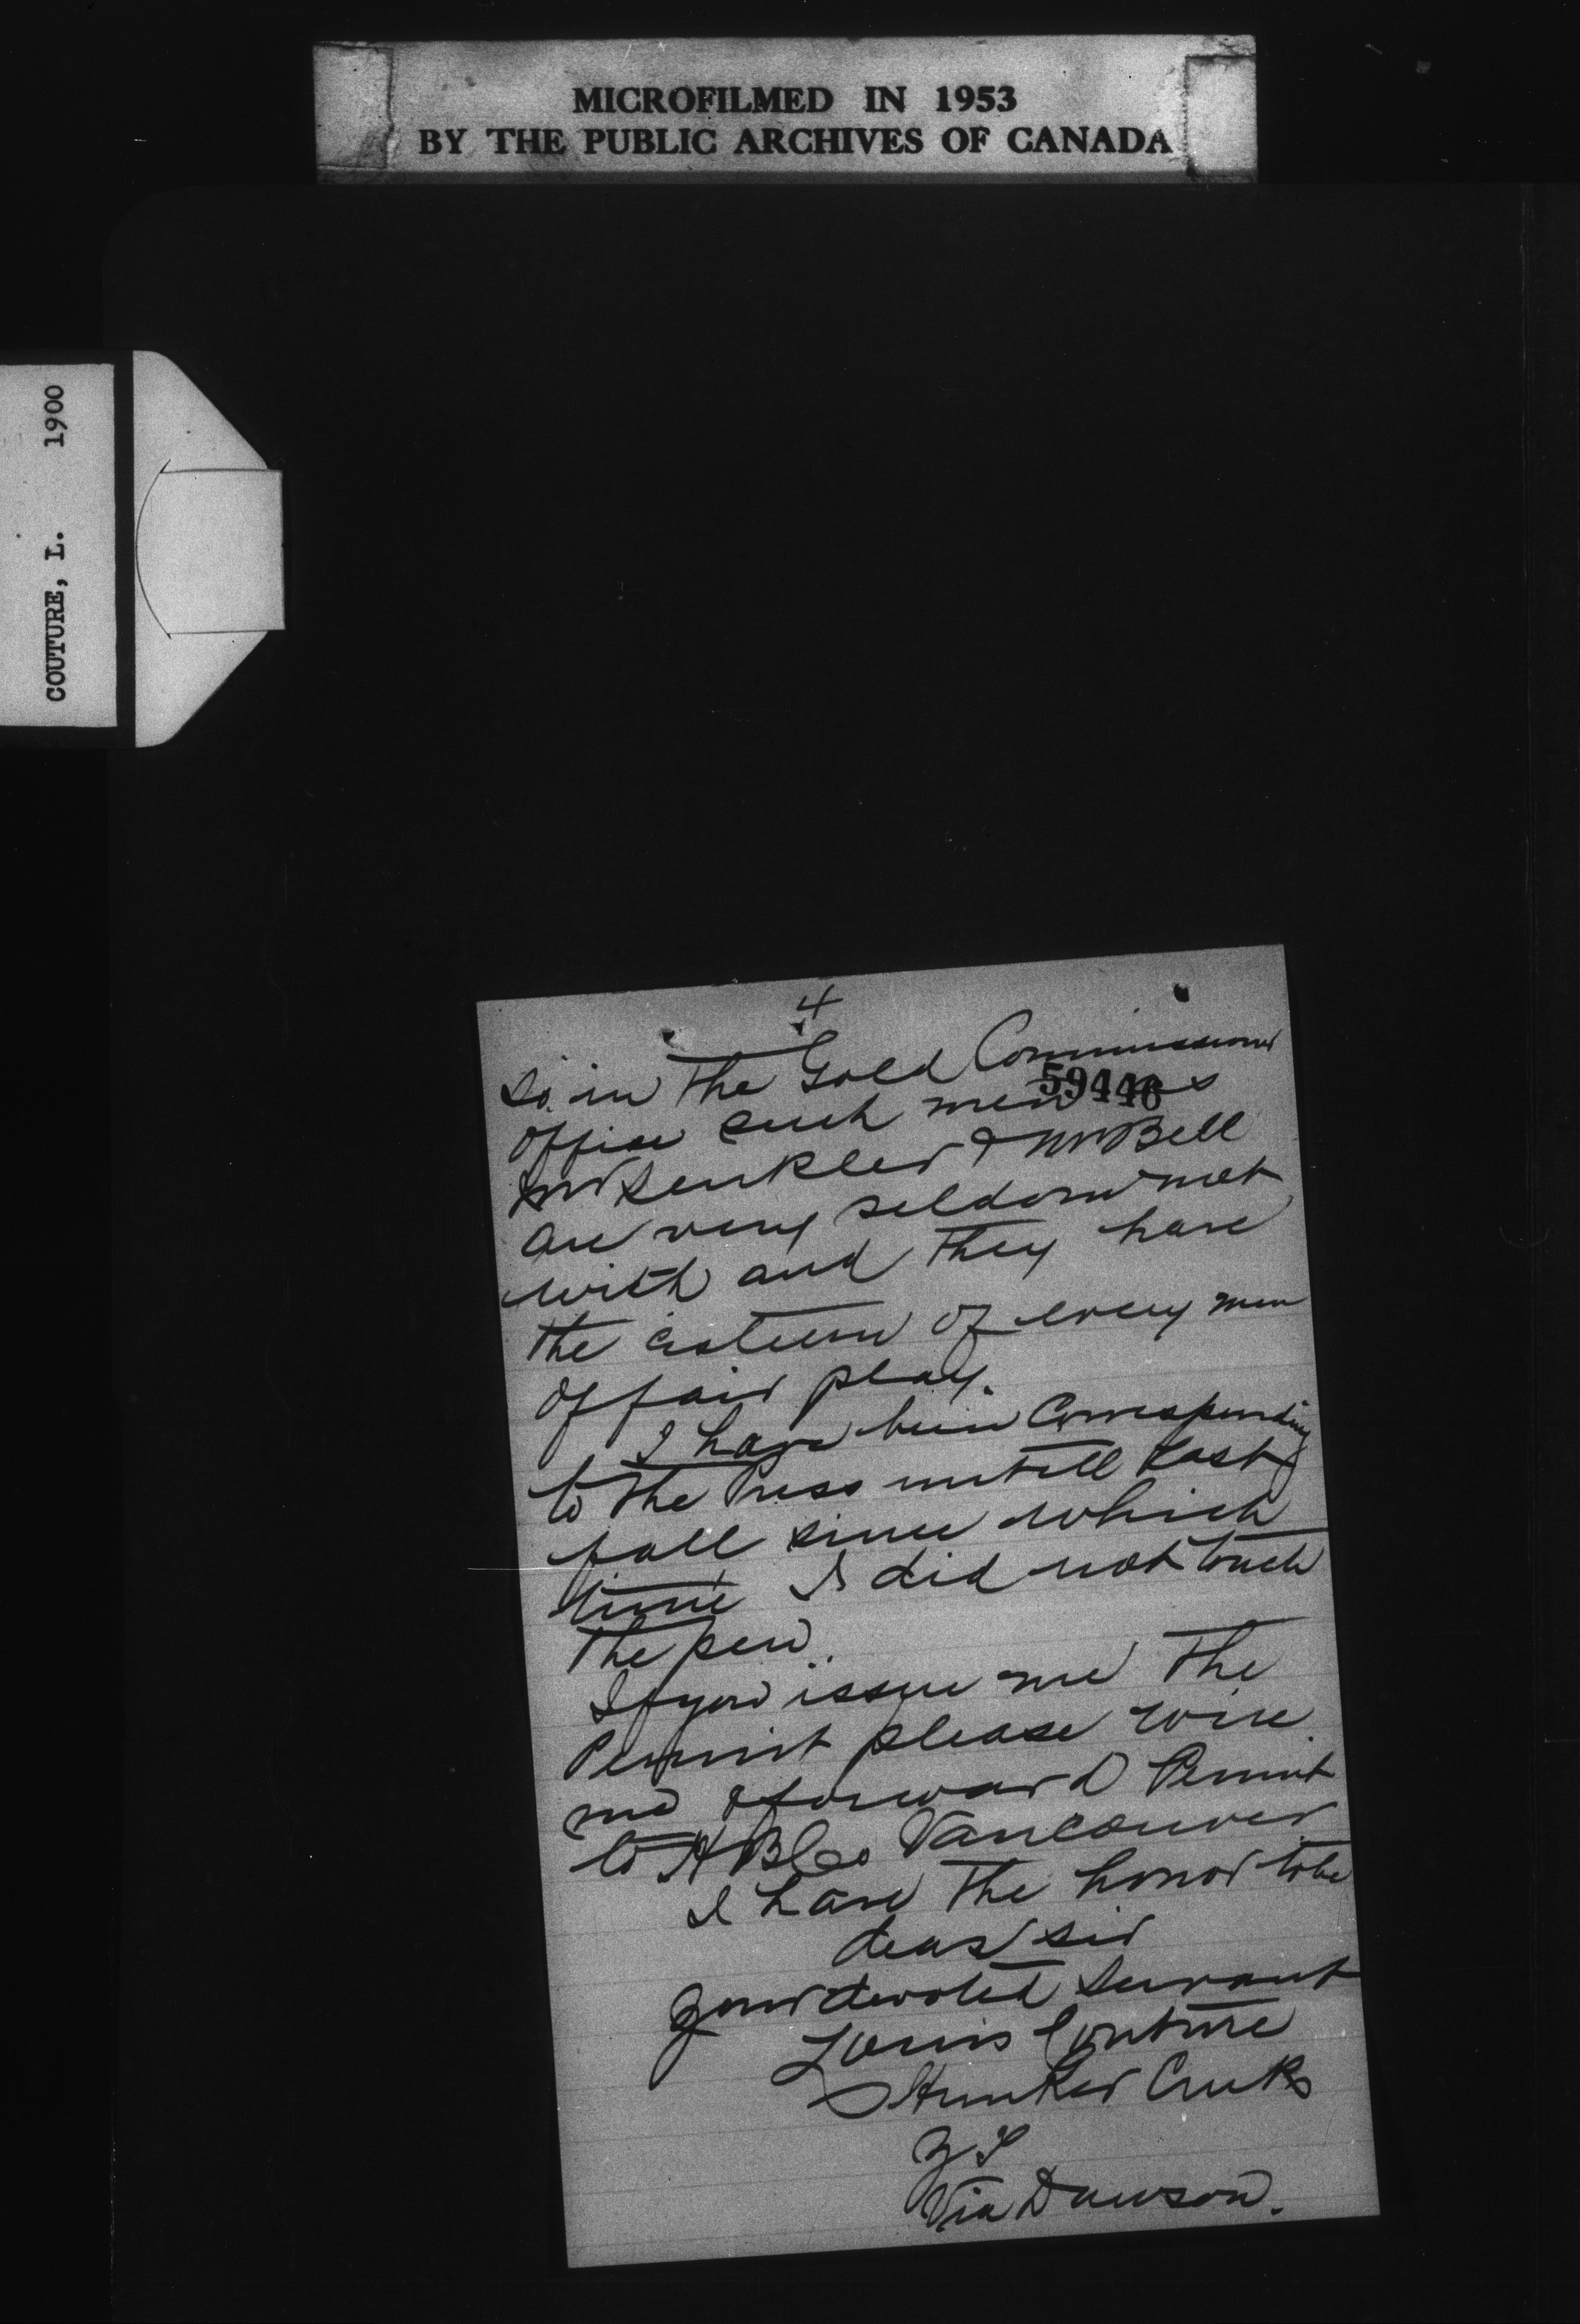 MICROFILMED IN 1953
BY THE PUBLIC ARCHIVES OF CANADA
COUTURE, L. 1900
4
so in the Gold Commissioner
59446
office such men as
Mr Senkler & Mr Bell
are very seldom met
with and they have
the esteem of every man
of fair play.
I have been Corresponding
to the Press untill last
fall since which
time I did not touch
the pen.
If you issue me the
Permit please wire
me & forward Permit
to H B Co Vancouver
I have the honor to be
dear sir
your devoted servant
Louis Couture
Hunker Creek
Y T
Via Dawson.